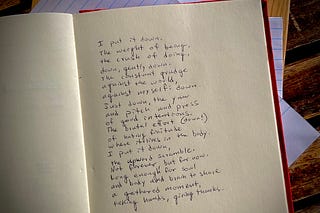 I put it down.
The weight of being.
the crush of doing.
down, gently down.
The constant grudge
against the world,
against myself: down.
Just down, the yaw
and pitch and press
of good intentions.
The brutal effort (down!)
of hating finitude
where it lives in the body.
I put it down,
the upward scramble.
Not forever, but for now.
Long enough for soul
and body and brain to share
a gathered moment,
taking hands, giving thanks.